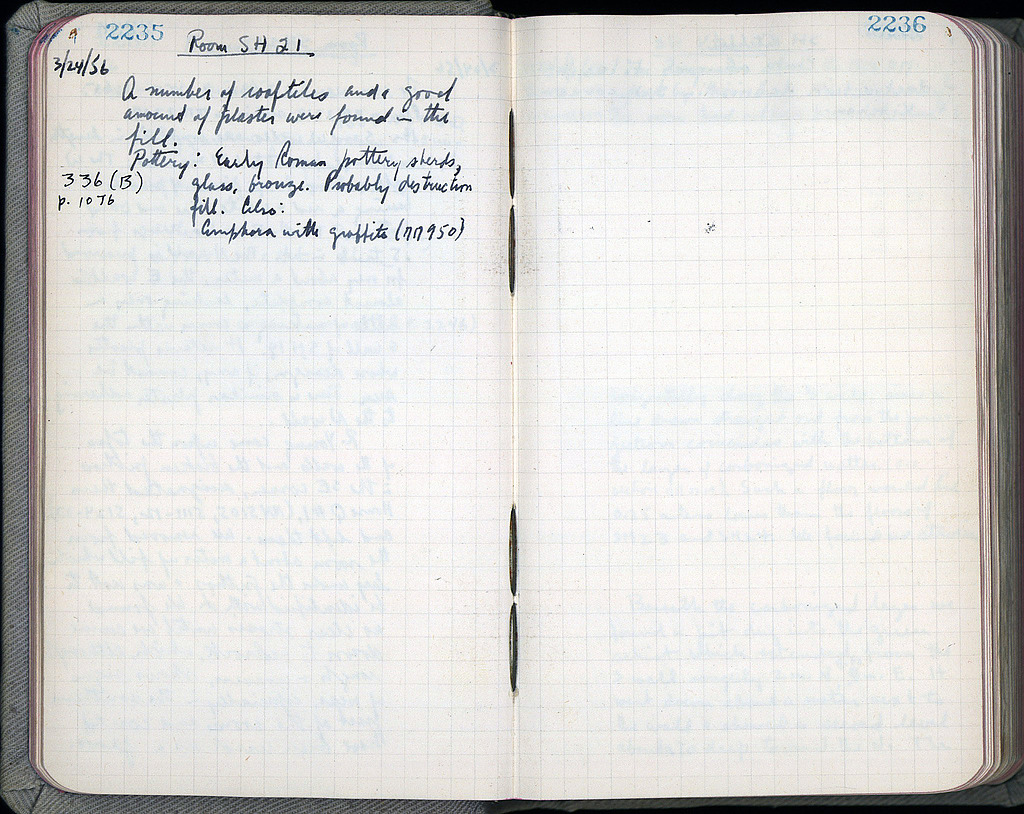 2235
Room SH 21
3/24/56
A number of rooftiles and a good
amount of plaster were found in the
fill.
Pottery: Early Roman pottery sherds,
336 (B)
glass, bronze. Probably destruction
p. 1076
fill. Also:
Amphora with graffito (ΠΠ 950)
2236